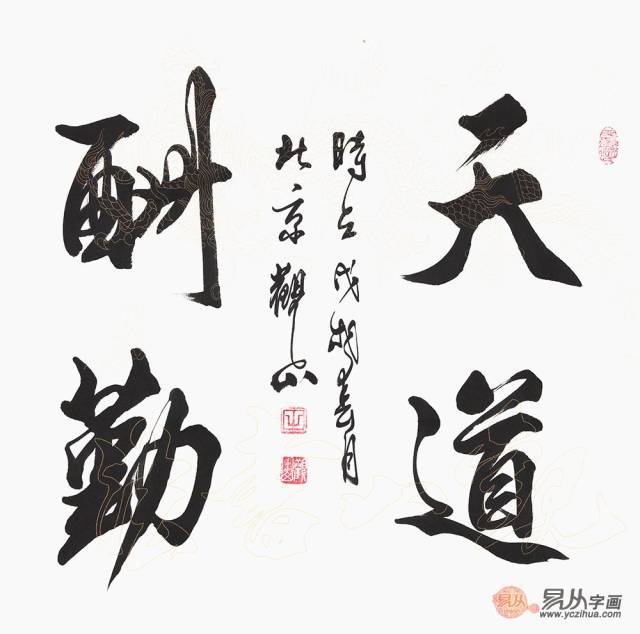 天道
酬勤
時在戊戌年春月
北京觀山
易从
易从字画
www.yczihua.com